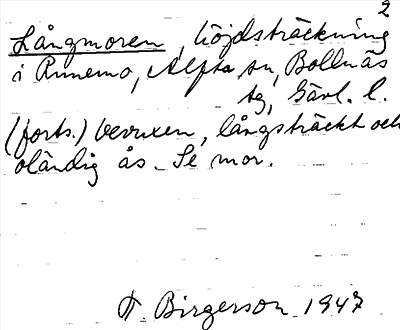 2
Långmoren, höjdsträckning
i Runemo, Alfta sn, Bollnäs
tg, Gävl. l.
(forts.) bevuxen, långsträckt och
oländig ås. Se mor.
T. Birgerson 1947